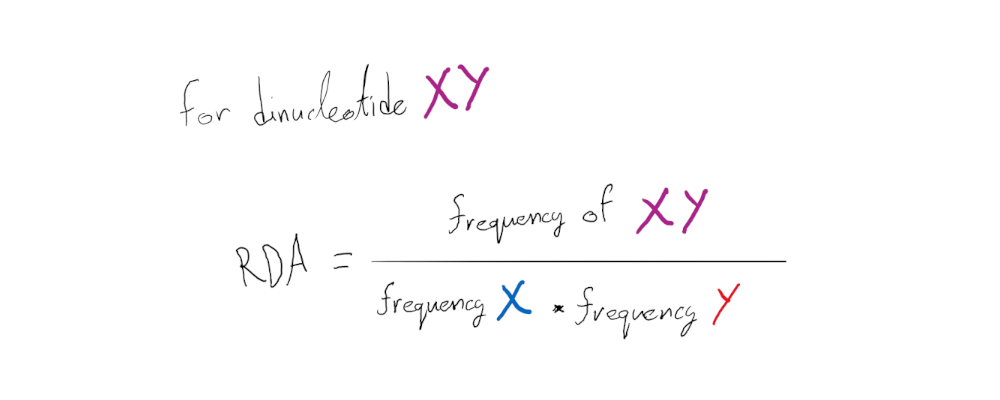 for dinucleotide XY
frequency of XY
RDA =
frequency X * frequency Y